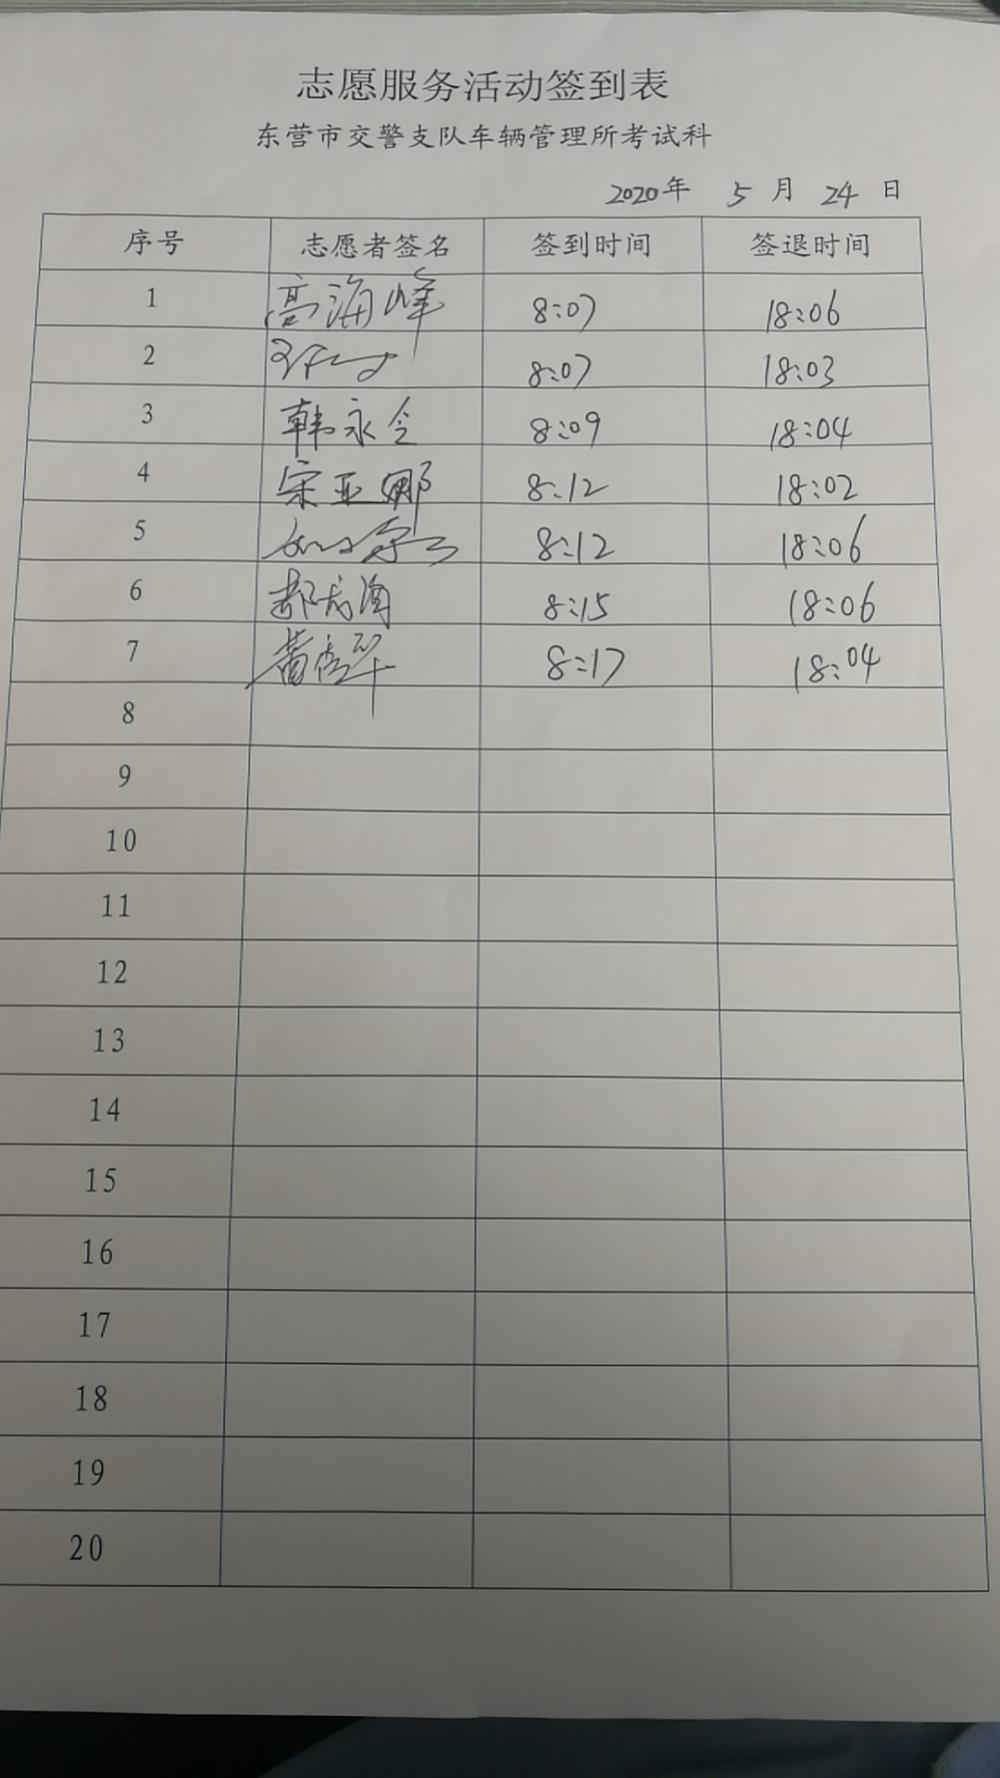 志愿服务活动签到表
东营市交警支队车辆管理所考试科
2020年 5 月 24 日
序号 志愿者签名 签到时间 签退时间
1 高海峰 8:07 18:06
2 8:07 18:03
3 韩永全 8:09 18:04
4 宋亚娜 8:12 18:02
5 8:12 18:06
6 8:15 18:06
7 8:17 18:04
8
9
10
11
12
13
14
15
16
17
18
19
20